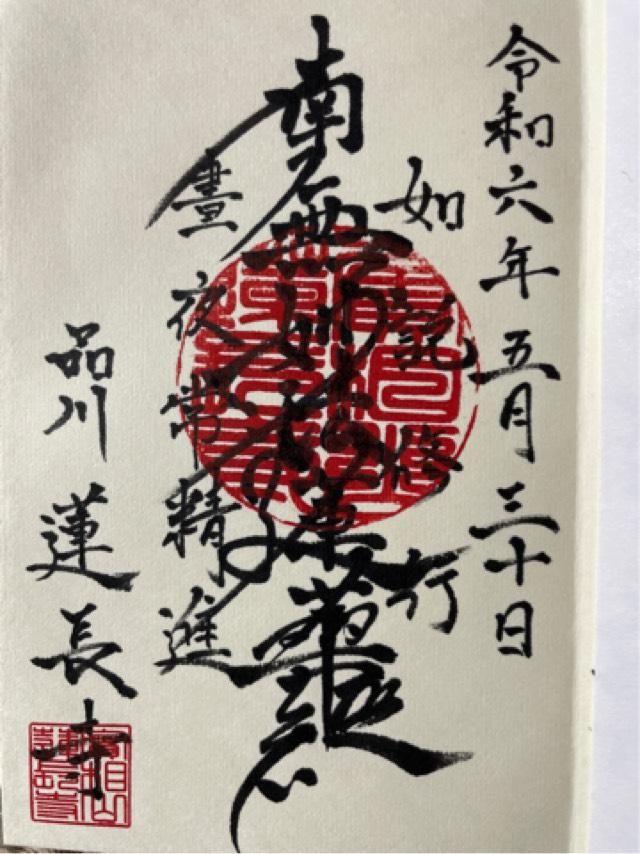 令和六年五月三十日
如説修行
南無妙法蓮華経
晝夜常精進
品川
蓮長寺